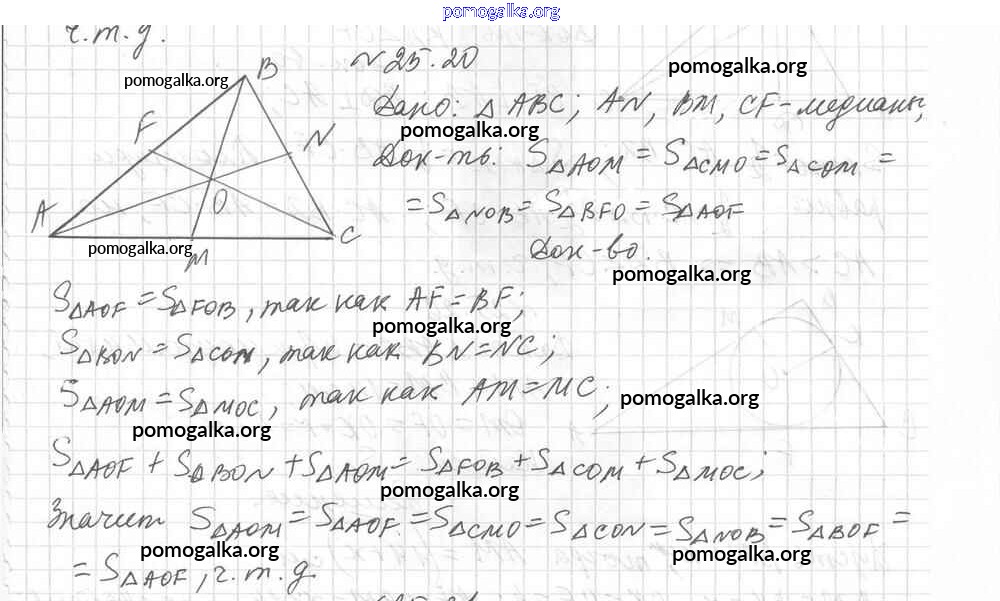 pomogalka.org
ч.т.д.
N 25.20
B
pomogalka.org
pomogalka.org
F
Дано: △ ABC; AN, BM, CF - медианы,
pomogalka.org
N
Док-ть: S△AOM = S△CMO = S△COM =
O
= S△NOB = S△BFO = S△AOF
A
C
M
pomogalka.org
Док-во.
pomogalka.org
S△AOF = S△FOB, так как AF = BF;
pomogalka.org
S△BON = S△COM, так как BN = NC;
S△AOM = S△MOC, так как AM = MC;
pomogalka.org
pomogalka.org
S△AOF + S△BON + S△AOM = S△FOB + S△COM + S△MOC;
pomogalka.org
Значит S△AOM = S△AOF = S△CMO = S△CON = S△NOB = S△BOF =
pomogalka.org
pomogalka.org
= S△AOF, ч.т.д.